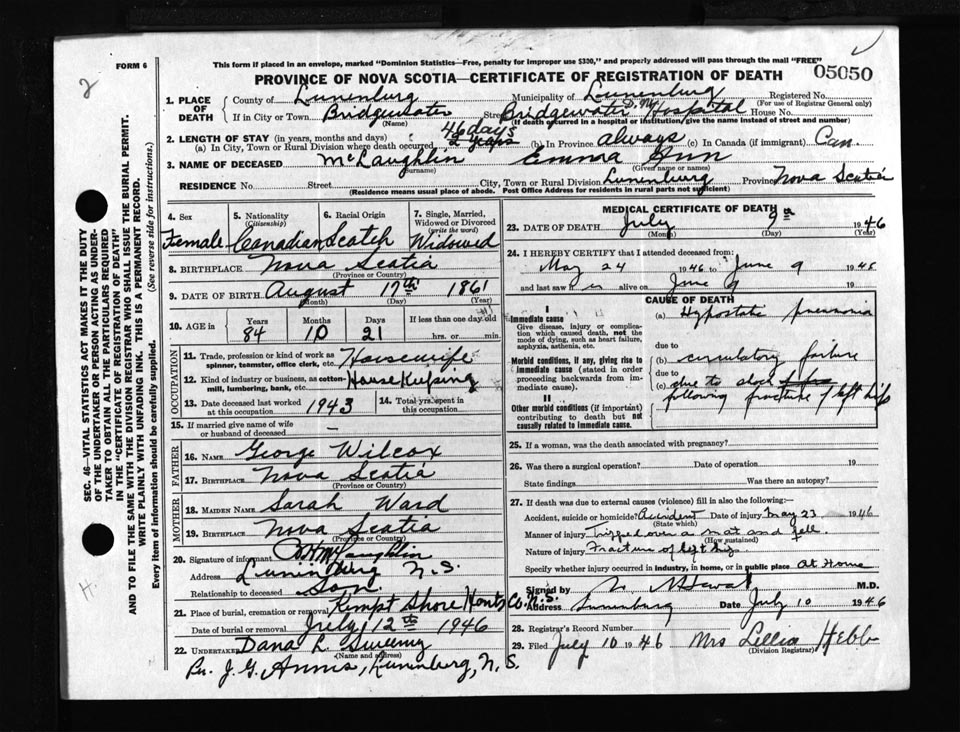 2
FORM 6
This form if placed in an envelope, marked "Dominion Statistics—Free, penalty for improper use $300," and properly addressed will pass through the mail "FREE"
PROVINCE OF NOVA SCOTIA—CERTIFICATE OF REGISTRATION OF DEATH
05050
1. PLACE OF DEATH County of Lunenburg Municipality of Lunenburg Registered No.
(For use of Registrar General only)
If in City or Town Bridgewater (Name) Street Bridgewater D. M. Hospital House No.
(If death occurred in a hospital or institution/give the name instead of street and number)
2. LENGTH OF STAY (in years, months and days) 46 days
(a) In City, Town or Rural Division where death occurred 2 years (b) In Province always (c) In Canada (if immigrant) Can.
3. NAME OF DECEASED McLaughlin Emma Ann
(Surname) (Given name or names)
RESIDENCE No. Street City, Town or Rural Division Lunenburg Province Nova Scotia
(Residence means usual place of abode. Post Office Address for residents in rural parts not sufficient)
SEC. 46—VITAL STATISTICS ACT MAKES IT THE DUTY
OF THE UNDERTAKER OR PERSON ACTING AS UNDER-
TAKER TO OBTAIN ALL THE PARTICULARS REQUIRED
IN THE "CERTIFICATE OF REGISTRATION OF DEATH"
AND TO FILE THE SAME WITH THE DIVISION REGISTRAR WHO SHALL ISSUE THE BURIAL PERMIT.
WRITE PLAINLY WITH UNFADING INK. THIS IS A PERMANENT RECORD.
Every item of information should be carefully supplied. (See reverse side for instructions.)
H.
4. Sex 5. Nationality (Citizenship) 6. Racial Origin 7. Single, Married, Widowed or Divorced (write the word)
Female Canadian Scotch Widowed
8. BIRTHPLACE Nova Scotia
(Province or Country)
9. DATE OF BIRTH August 17th 1861
(Month) (Day) (Year)
10. AGE in Years Months Days If less than one day old
84 10 21 hrs. or min.
OCCUPATION
11. Trade, profession or kind of work as spinner, teamster, office clerk, etc. Housewife
12. Kind of industry or business, as cotton-mill, lumbering, bank, etc. House Keeping
13. Date deceased last worked at this occupation 1943 14. Total yrs. spent in this occupation
15. If married give name of wife or husband of deceased —
FATHER
16. Name George Wilcox
17. Birthplace Nova Scotia
(Province or Country)
MOTHER
18. MAIDEN NAME Sarah Ward
19. Birthplace Nova Scotia
(Province or Country)
20. Signature of informant McLaughlin
Address Lunenburg N.S.
Relationship to deceased Son
21. Place of burial, cremation or removal Kempt Shore Hants Co. N.S.
Date of burial or removal July 12th 1946
22. UNDERTAKER Dana L. Sweeny
(Name and address)
Per. J. G. Annis, Lunenburg, N.S.
MEDICAL CERTIFICATE OF DEATH
23. DATE OF DEATH July 9th 1946
(Month) (Day) (Year)
24. I HEREBY CERTIFY that I attended deceased from:
May 24 1946 to June 9 1946
and last saw her alive on June 9 19
CAUSE OF DEATH
I
Immediate cause
Give disease, injury or complication which caused death, not the mode of dying, such as heart failure, asphyxia, asthenia, etc.
(a) Hypostatic pneumonia
due to
Morbid conditions, if any, giving rise to immediate cause (stated in order proceeding backwards from immediate cause).
(b) circulatory failure
due to
(c) due to shock following fracture of left hip
II
Other morbid conditions (if important) contributing to death but not causally related to immediate cause.
25. If a woman, was the death associated with pregnancy?
26. Was there a surgical operation? Date of operation 19
State findings Was there an autopsy?
27. If death was due to external causes (violence) fill in also the following:—
Accident, suicide or homicide? Accident Date of injury May 23 1946
(State which)
Manner of injury Tripped over a mat and fell.
(How sustained)
Nature of injury Fracture of left hip
Specify whether injury occurred in industry, in home, or in public place At Home
Signed by M.D.
Address Lunenburg Date July 10 1946
28. Registrar's Record Number
29. Filed July 10 1946 Mrs Lillia Hebb
(Division Registrar)